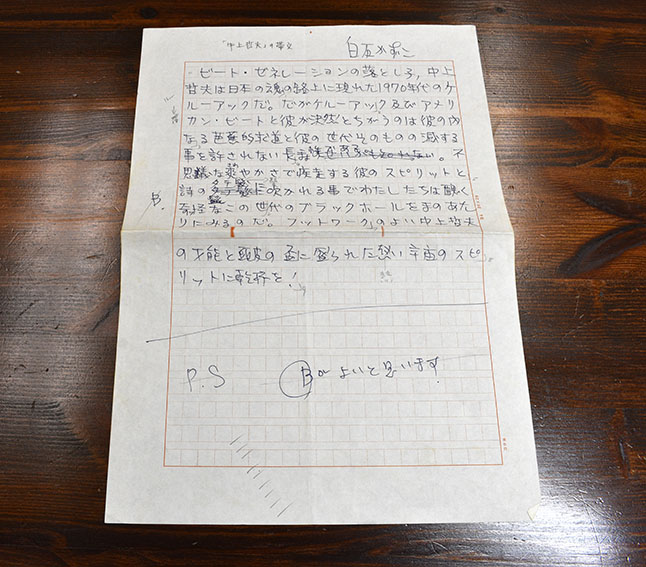 「中上哲夫」の帯文
白石かずこ
ビート・ゼネレーションの落とし子、中上
哲夫は日本の魂の路上に現れた1970年代のケ
ルーアックだ。だがケルーアック及びアメリ
カン・ビートと彼が決然とちがうのは彼の内
なる芭蕉的求道と彼の世代そのものの滅する
事を許されない長
。不
思議な爽やかさで疾走する彼のスピリットと
詩の に吹かれる事でわたしたちは醜く
奇怪なこの世代のブラックホールを手のあた
りにみるのだ。フットワークのよい中上哲夫
の才能と頭脳の盃に盛られた熱い宇宙のスピ
リットに乾杯を!
B.
P.S
Bがよいと思います